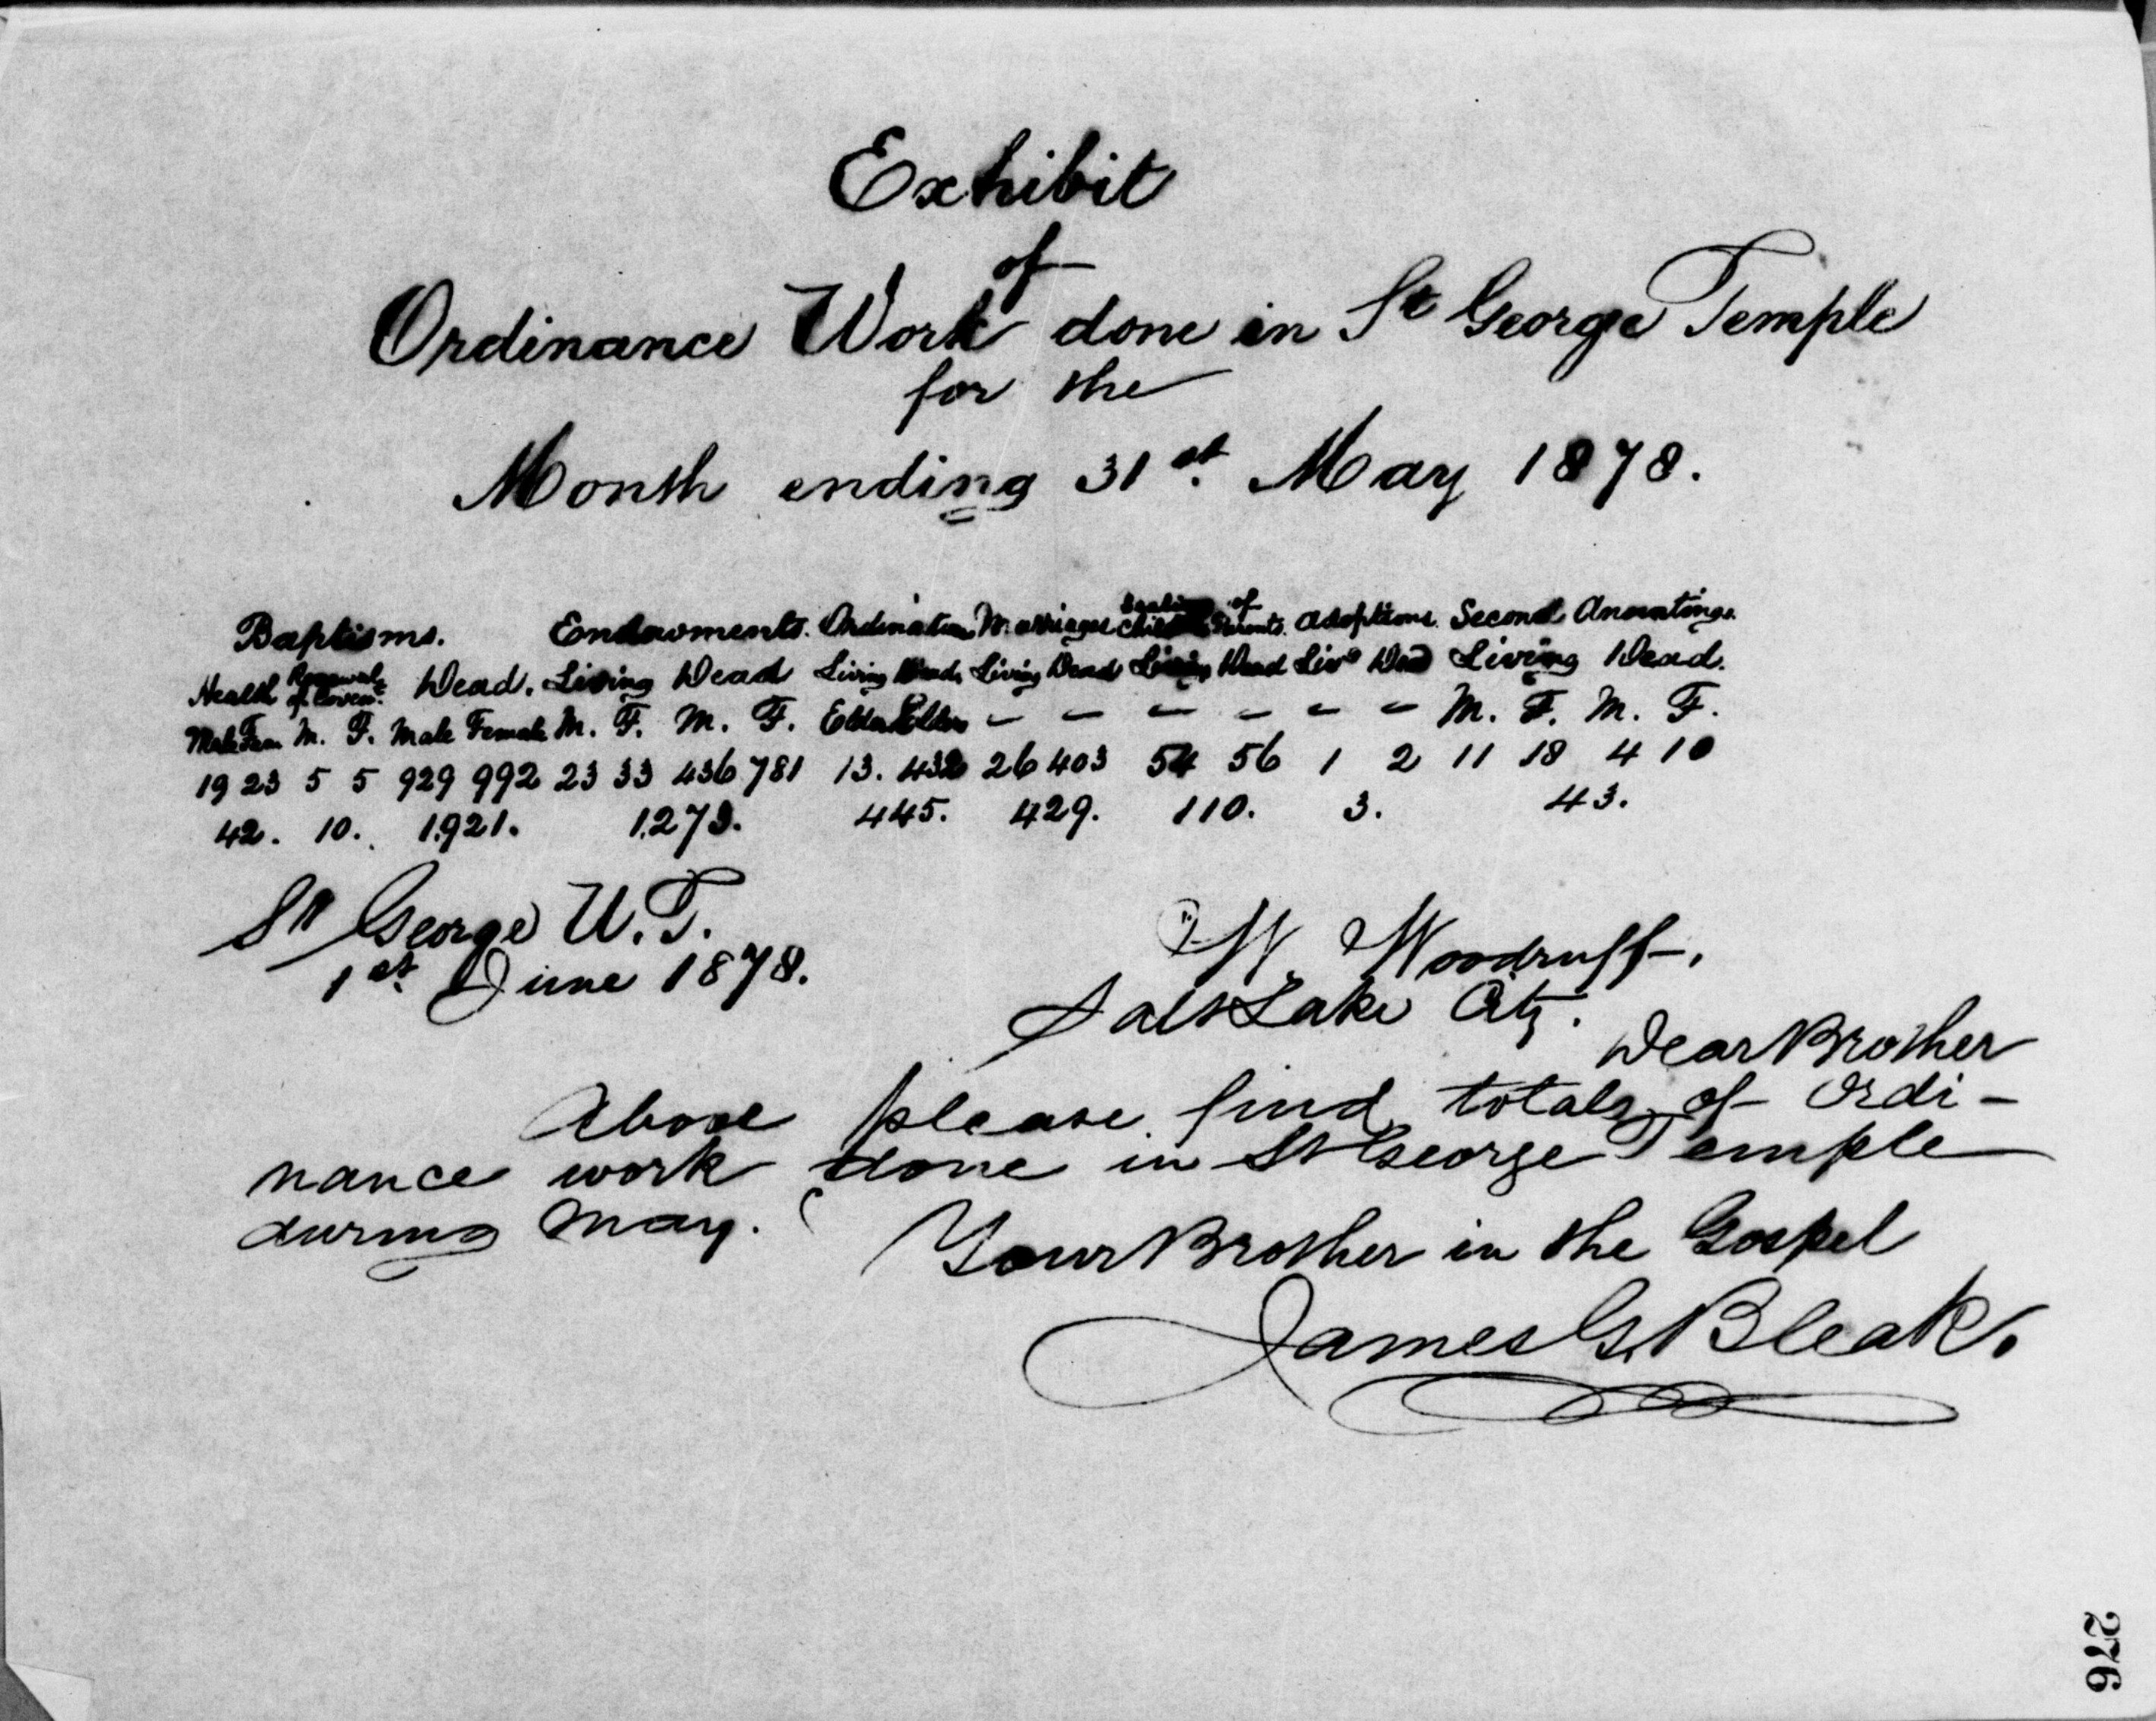 Exhibit
of
Ordinance Work done in St George Temple
for the
Month ending 31st. May 1878.
Baptisms. Endowments. Ordinations Marriages Sealing of Children Parents. Adoptions. Second Anointings.
Health Renewal of Coven. Dead. Living Dead Living Dead. Living Dead Living Dead Liv Dead Living Dead.
Male Fem M. F. Male Female M. F. M. F. Elder Elders — — — — — — M. F. M. F.
19 23 5 5 929 992 23 33 436 781 13. 432 26 403 54 56 1 2 11 18 4 10
42. 10. 1.921. 1.273. 445. 429. 110. 3. 43.
St George U.T.
1st. June 1878.
W. Woodruff.
Salt Lake City.
Dear Brother
Above please find totals of Ordi-
nance work done in St George Temple
during May.
Your Brother in the Gospel
James G. Bleak.
276